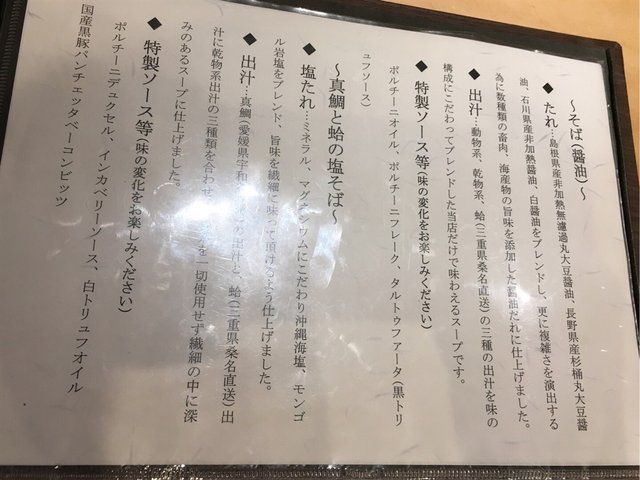 ～そば(醤油)～
◆ たれ…島根県産非加熱無濾過丸大豆醤油、長野県産杉桶丸大豆醤
油、石川県産非加熱醤油、白醤油をブレンドし、更に複雑さを演出する
為に数種類の畜肉、海産物の旨味を添加した醤油だれに仕上げました。
◆ 出汁…動物系、乾物系、蛤(三重県桑名直送)の三種の出汁を味の
構成にこだわってブレンドした当店だけで味わえるスープです。
◆ 特製ソース等(味の変化をお楽しみください)
ポルチーニオイル、ポルチーニフレーク、タルトゥファータ(黒トリ
ュフソース)
～真鯛と蛤の塩そば～
◆ 塩たれ…ミネラル マグネシウムにこだわり沖縄海塩、モンゴ
ル岩塩をブレンド、旨味を繊細に味って頂けるよう仕上げました。
◆ 出汁…真鯛(愛媛県宇和 の出汁と、蛤(三重県桑名直送)出
汁に乾物系出汁の三種類を合わせ を一切使用せず繊細の中に深
みのあるスープに仕上げました。
◆ 特製ソース等(味の変化をお楽しみください)
ポルチーニデュクセル、インカベリーソース、白トリュフオイル
国産黒豚パンチェッタベーコンビッツ